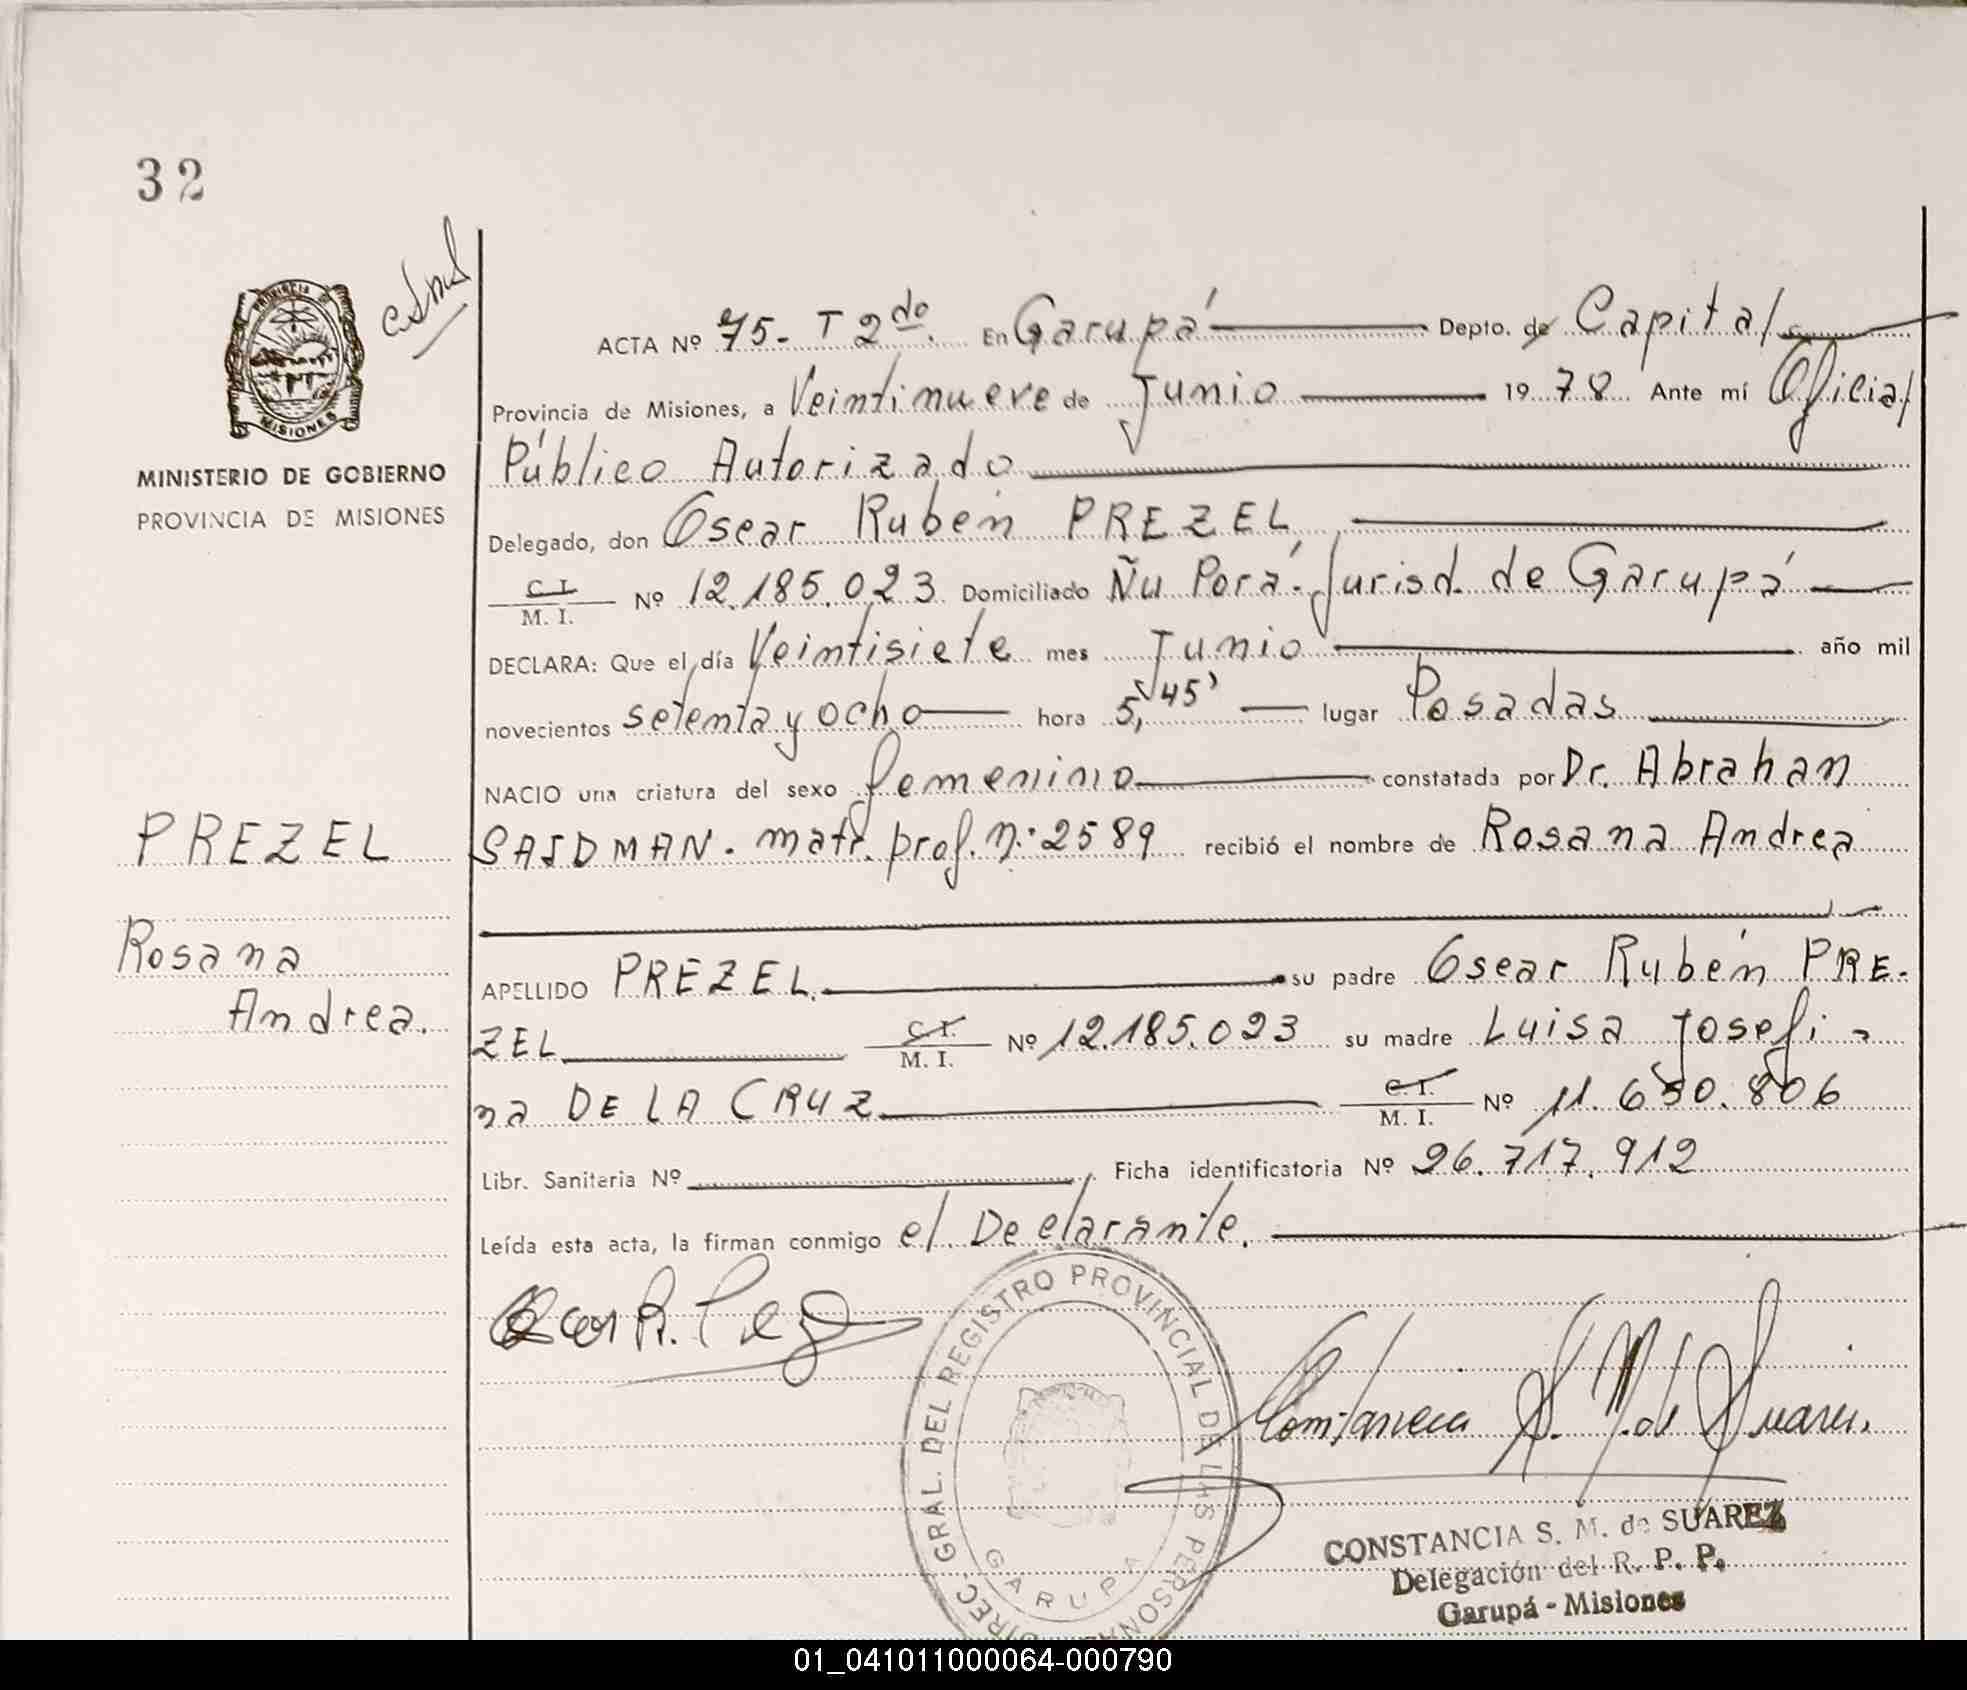 32
PROVINCIA DE
MISIONES
MINISTERIO DE GOBIERNO
PROVINCIA DE MISIONES
ACTA Nº 75- T 2do. En Garupá Depto. de Capital
Provincia de Misiones, a Veintinueve de Junio 1978 Ante mí Oficial
Público Autorizado
Delegado, don Oscar Rubén PREZEL
C. I. / M. I. Nº 12.185.023 Domiciliado Ñu Porá. Jurisd. de Garupá
DECLARA: Que el día Veintisiete mes Junio año mil
novecientos setenta y ocho hora 5,45' lugar Posadas
NACIO una criatura del sexo femenino constatada por Dr. Abrahan
SAIDMAN. matr. prof. n: 2589 recibió el nombre de Rosana Andrea
PREZEL
Rosana
Andrea.
APELLIDO PREZEL. su padre Oscar Rubén PRE-
ZEL C. I. / M. I. Nº 12.185.023 su madre Luisa Josefi-
na DE LA CRUZ C. I. / M. I. Nº 11.630.806
Libr. Sanitaria Nº Ficha identificatoria Nº 26.717.912
Leída esta acta, la firman conmigo el Declarante.
DIREC. GRAL. DEL REGISTRO PROVINCIAL DE LAS PERSONAS
GARUPA
Constancia S. M. de Suarez.
CONSTANCIA S. M. de SUAREZ
Delegación del R. P. P.
Garupá - Misiones
01_041011000064-000790